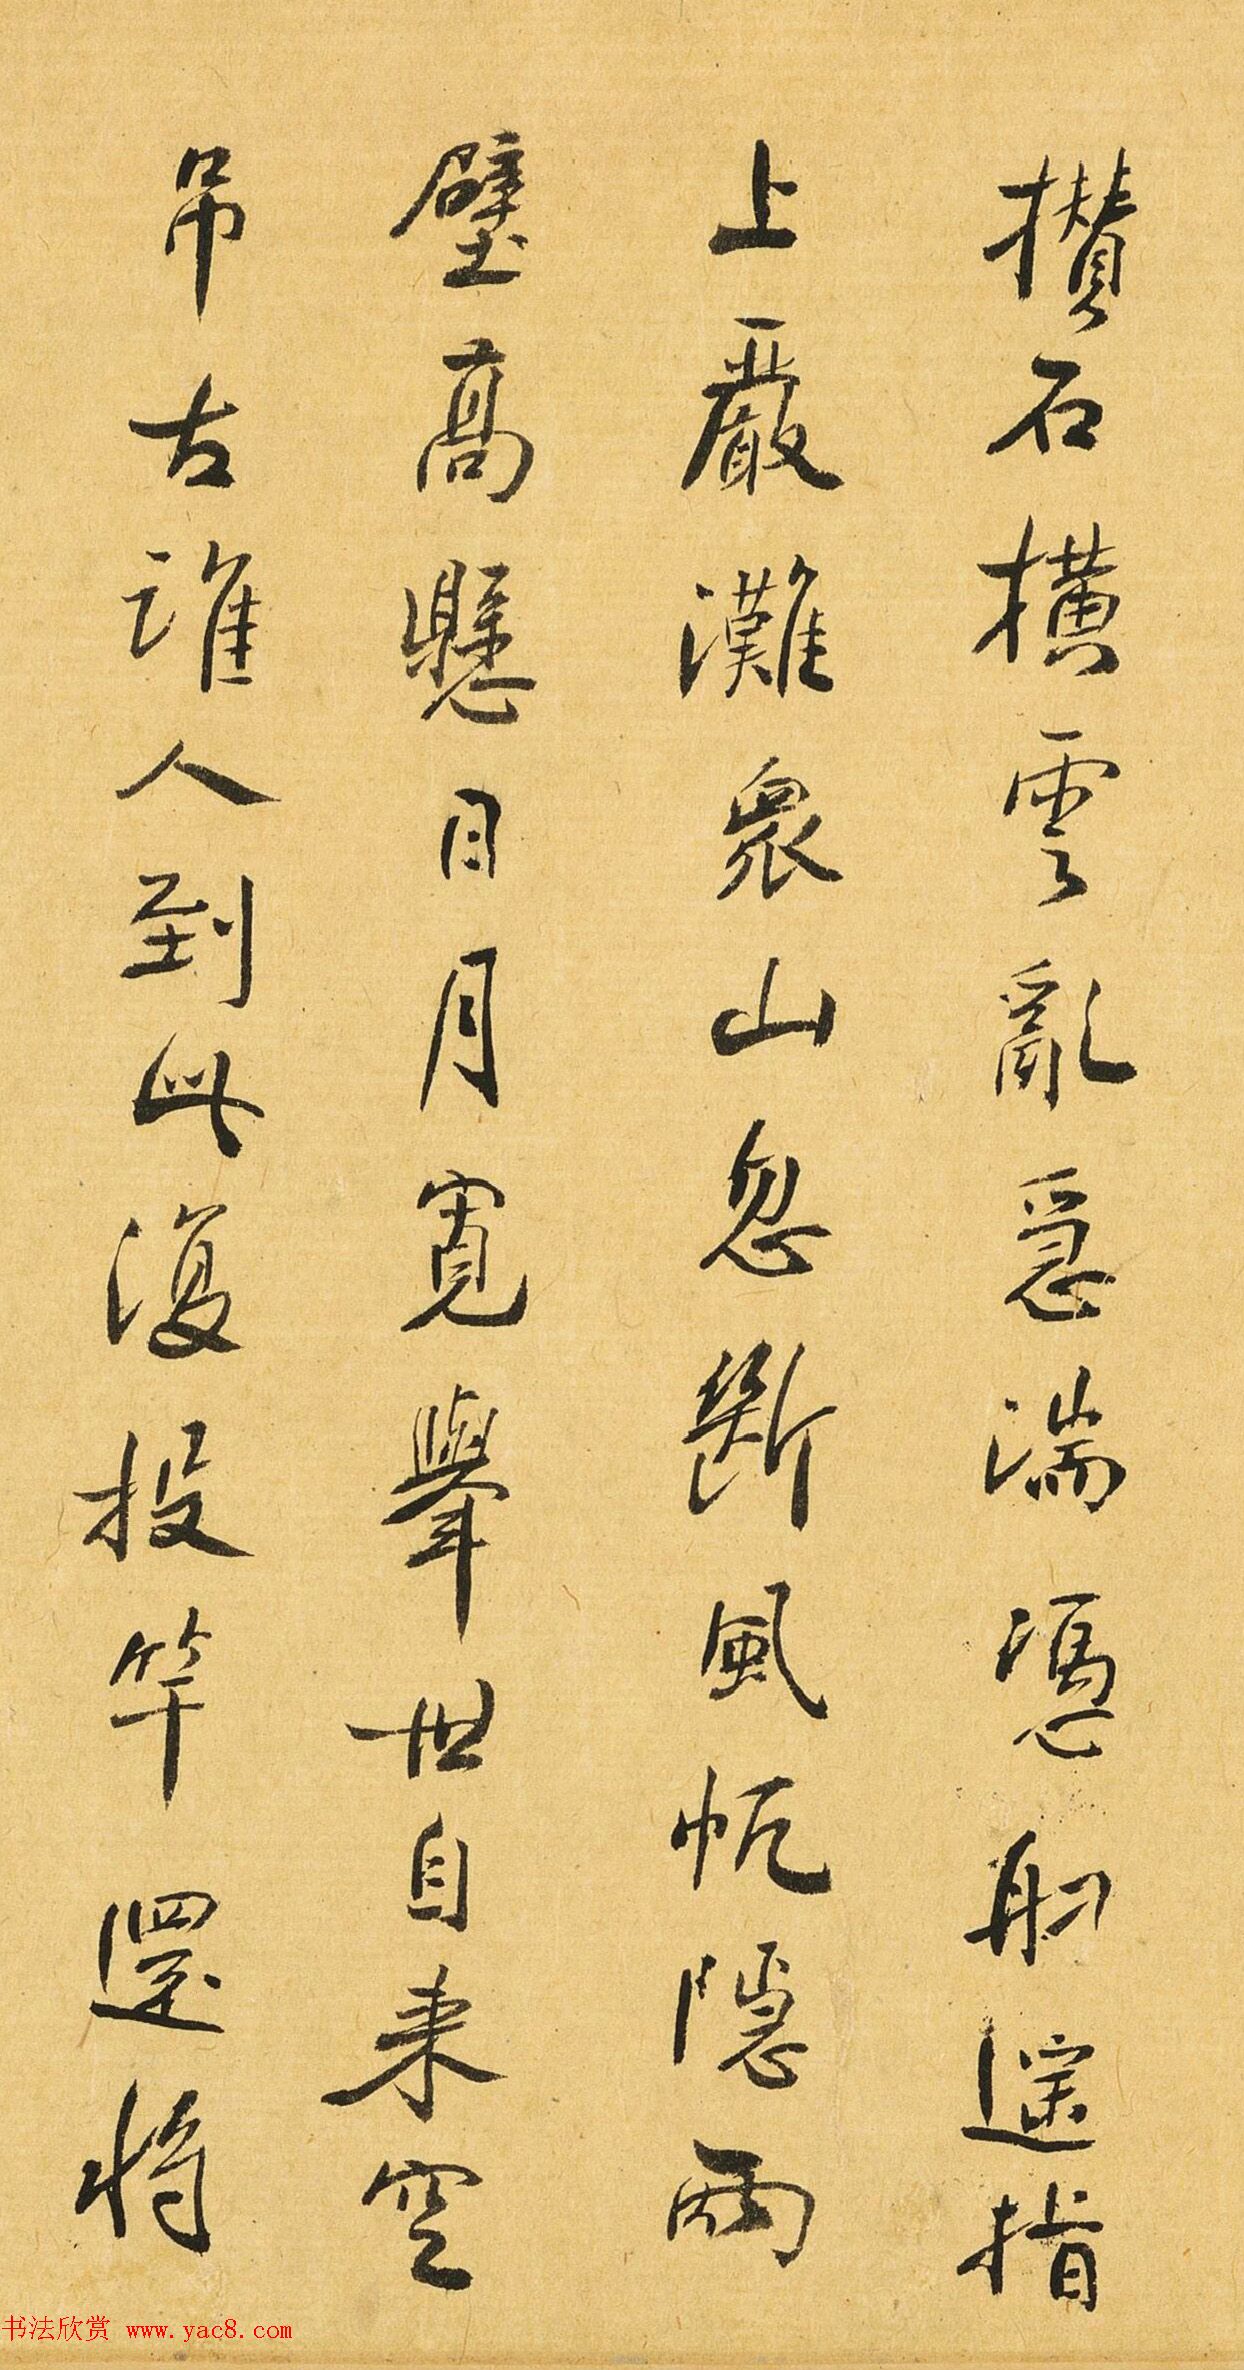 攢石橫雲亂急湍憑舠遥指
上嚴灘衆山忽斷風帆隱兩
壁高懸日月寬舉世自来空
吊古誰人到此復投竿還將
书法欣赏 www.yac8.com